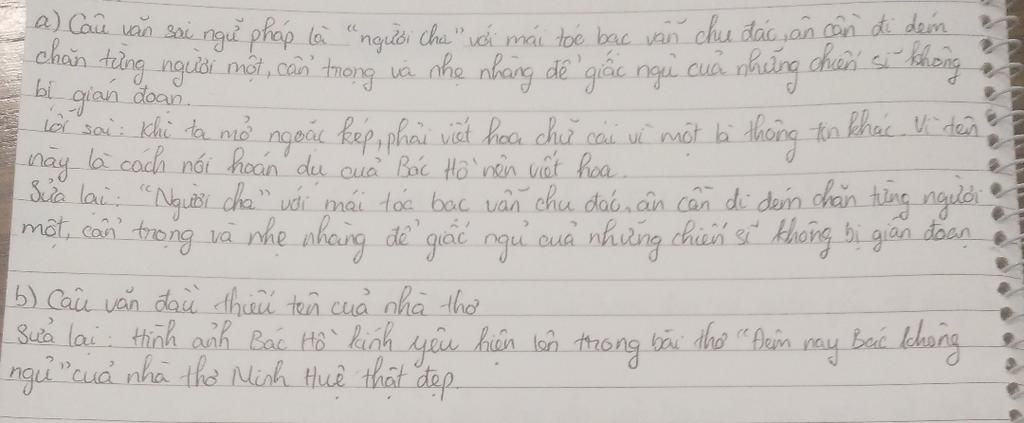 a) Câu văn sai ngữ pháp là "người cha" với mái tóc bạc vẫn chu đác, ân cần đi dém
chăn từng người một, cẩn trọng và nhẹ nhàng để giấc ngủ của những chiến sĩ không
bị gián đoạn.
Lỗi sai: Khi ta mở ngoặc kép, phải viết hoa chữ cái vì một là thông tin khác. Vì tên
này là cách nói hoán dụ của Bác Hồ nên viết hoa.
Sửa lại: "Người cha" với mái tóc bạc vẫn chu đác, ân cần đi dém chăn từng người
một, cẩn trọng và nhẹ nhàng để giấc ngủ của những chiến sĩ không bị gián đoạn
b) Câu văn đầu thiếu tên của nhà thơ
Sửa lại: Hình ảnh Bác Hồ kính yêu hiện lên trong bài thơ "Đêm nay Bác không
ngủ" của nhà thơ Minh Huệ thật đẹp.